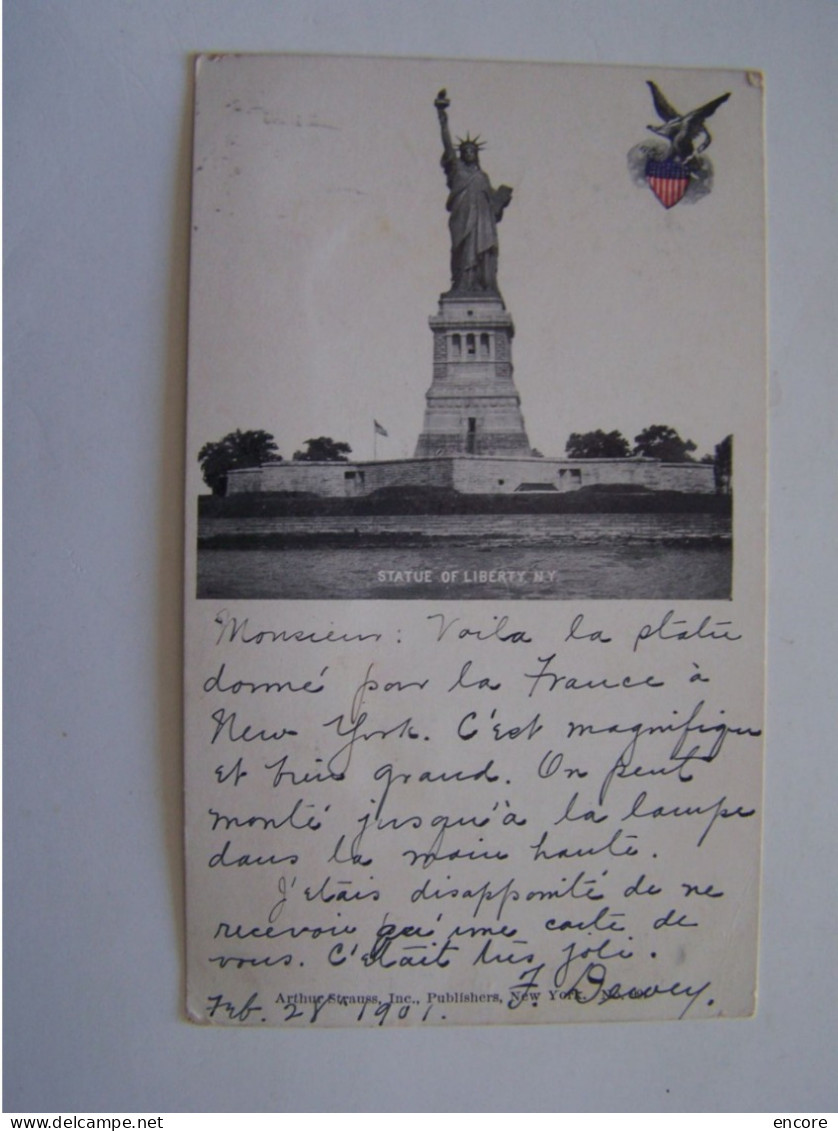 STATUE OF LIBERTY, N.Y.
Monsieur: Voila la statue
donné par la France à
New York. C'est magnifique
et trés grand. On peut
monté jusqu'à la lampe
dans la main haute.
J'etais disappointé de ne
recevoir qu'une carte de
vous. C'etait trés joli.
F. Dewey.
Arthur Strauss, Inc., Publishers, New York.
Feb. 28 1901.
delcampe.net
encore